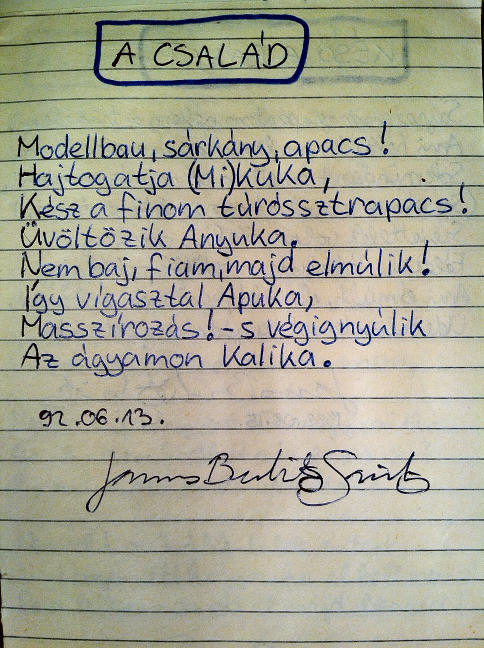 A CSALÁD
Modellbau, sárkány, apacs!
Hajtogatja (Mi)kuka,
Kész a finom túróssztrapacs!
Üvöltözik Anyuka.
Nem baj, fiam, majd elmúlik!
Így vigasztal Apuka,
Masszírozás! - s végignyúlik
Az ágyamon Kalika.
92.06.13.